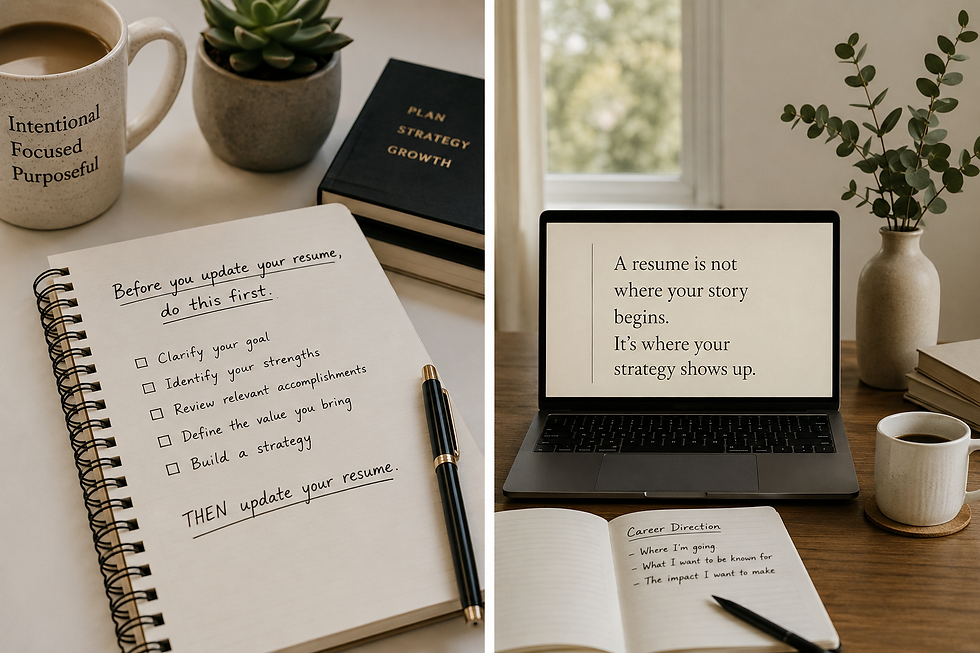 Intentional
Focused
Purposeful
PLAN
STRATEGY
GROWTH
Before you update your resume,
do this first.
Clarify your goal
Identify your strengths
Review relevant accomplishments
Define the value you bring
Build a strategy
THEN update your resume.
A resume is not
where your story
begins.
It's where your
strategy shows up.
Career Direction
- Where I'm going
- What I want to be known for
- The impact I want to make